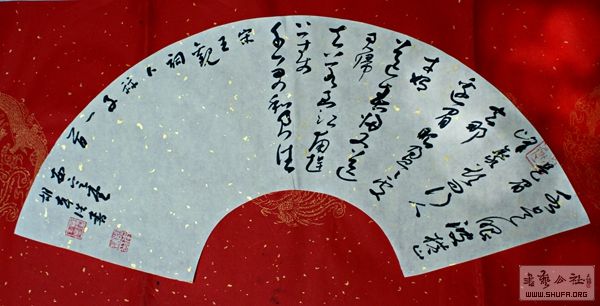 水是眼波横山
是眉峰聚欲问行人
去那边眉眼盈盈处
才始送春归又送
君归
去若到江南赶
上春
千万和春住
宋王觀詞卜算子一首
WWW.SHUFA.ORG